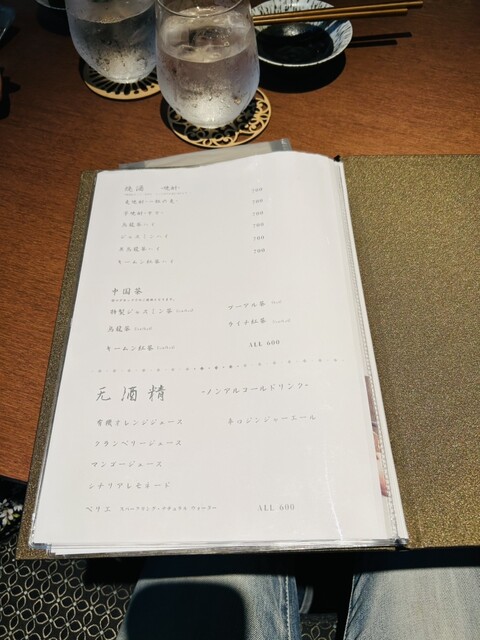 焼酒 -焼酎- 700
麦焼酎・一粒の麦・ 700
芋焼酎・
烏龍茶ハイ 700
ジャスミンハイ 700
黒烏龍茶ハイ 700
キームン紅茶ハイ
中国茶
特製ジャスミン茶 Ice/Hot
マーブル茶
烏龍茶 Ice/Hot
ライチ紅茶 Ice/Hot
キームン紅茶 Ice/Hot
ALL 600
无酒精 -ノンアルコールドリンク-
有機オレンジジュース
辛口ジンジャーエール
クランベリージュース
マンゴージュース
シチリアレモネード
ペリエ スパークリング・ナチュラル ウォーター ALL 600